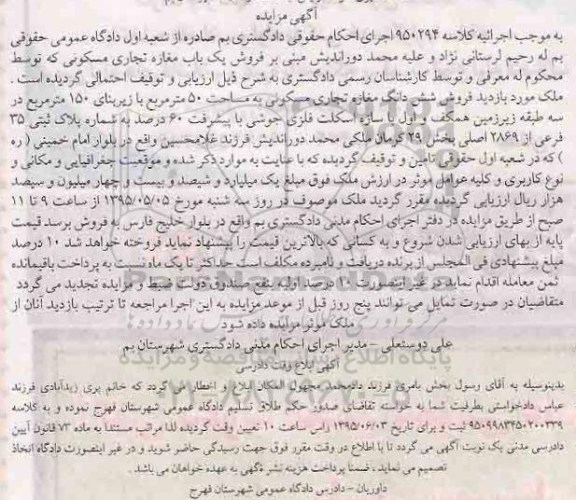 آگهی مزایده
به موجب اجرائیه کلاسه ۹۵۰۲۹۴ اجرای احکام حقوقی دادگستری بم صادره از شعبه اول دادگاه عمومی حقوقی
بم له رحیم لرستانی نژاد و علیه محمد دوراندیش مبنی بر فروش یک باب مغازه تجاری مسکونی که توسط
محکوم له معرفی و توسط کارشناسان رسمی دادگستری به شرح ذیل ارزیابی و توقیف احتمالی گردیده است .
ملک مورد بازدید فروش شش دانگ مغازه تجاری مسکونی به مساحت ۵۰ مترمربع با زیربنای ۱۵۰ مترمربع در
سه طبقه زیرزمین همکف و اول با سازه اسکلت فلزی جوشی با پیشرفت ۶۰ درصد به شماره پلاک ثبتی ۳۵
فرعی از ۲۸۶۹ اصلی بخش ۲۹ کرمان ملکی محمد دوراندیش فرزند غلامحسین واقع در بلوار امام خمینی ( ره
) که در شعبه اول حقوقی تامین و توقیف گردیده که با عنایت به موارد ذکر شده و موقعیت جغرافیایی و مکانی و
نوع کاربری و کلیه عوامل موثر در ارزش ملک فوق مبلغ یک میلیارد و ششصد و بیست و چهار میلیون و سیصد
هزار ریال ارزیابی گردیده مقرر گردید ملک موصوف در روز سه شنبه مورخ ۱۳۹۵/۰۵/۰۵ از ساعت ۹ تا ۱۱
صبح از طریق مزایده در دفتر اجرای احکام مدنی دادگستری بم واقع در بلوار خلیج فارس به فروش برسد قیمت
پایه از بهای ارزیابی شدن شروع و به کسانی که بالاترین قیمت را پیشنهاد نماید فروخته خواهد شد ۱۰ درصد
مبلغ پیشنهادی فی المجلس از برنده دریافت و نامبرده مکلف است حداکثر تا یک ماه نسبت به پرداخت باقیمانده
ثمن معامله اقدام نماید در غیر اینصورت ۱۰ درصد اولیه بنفع صندوق دولت ضبط و مزایده تجدید می گردد
متقاضیان در صورت تمایل می توانند پنج روز قبل از موعد مزایده به این اجرا مراجعه تا ترتیب بازدید آنان از
ملک موثر مزایده داده شود
علی دوستعلی - مدیر اجرای احکام مدنی دادگستری شهرستان بم
آگهی ابلاغ وقت دادرسی
بدینوسیله به آقای رسول بخش بامری فرزند دادمحمد مجهول المکان ابلاغ و اخطار می گردد که خانم پری زیدآبادی فرزند
عباس دادخواستی بطرفیت شما به خواسته تقاضای صدور حکم طلاق تسلیم دادگاه عمومی شهرستان فهرج نموده و به کلاسه
۹۵۰۹۹۸۳۴۵۰۲۰۰۳۳۹ ثبت و برای تاریخ ۱۳۹۵/۰۶/۰۳ راس ساعت ۱۰ تعیین وقت گردیده لذا مراتب مستندا به ماده ۷۳ قانون آیین
دادرسی مدنی یک نوبت آگهی می گردد تا با اطلاع در وقت مقرر فوق جهت رسیدگی حاضر شوید و در غیر اینصورت دادگاه اتخاذ
تصمیم می نماید ، ضمنا پرداخت هزینه نشر آگهی به عهده خواهان می باشد .
داوریان - دادرس دادگاه عمومی شهرستان فهرج